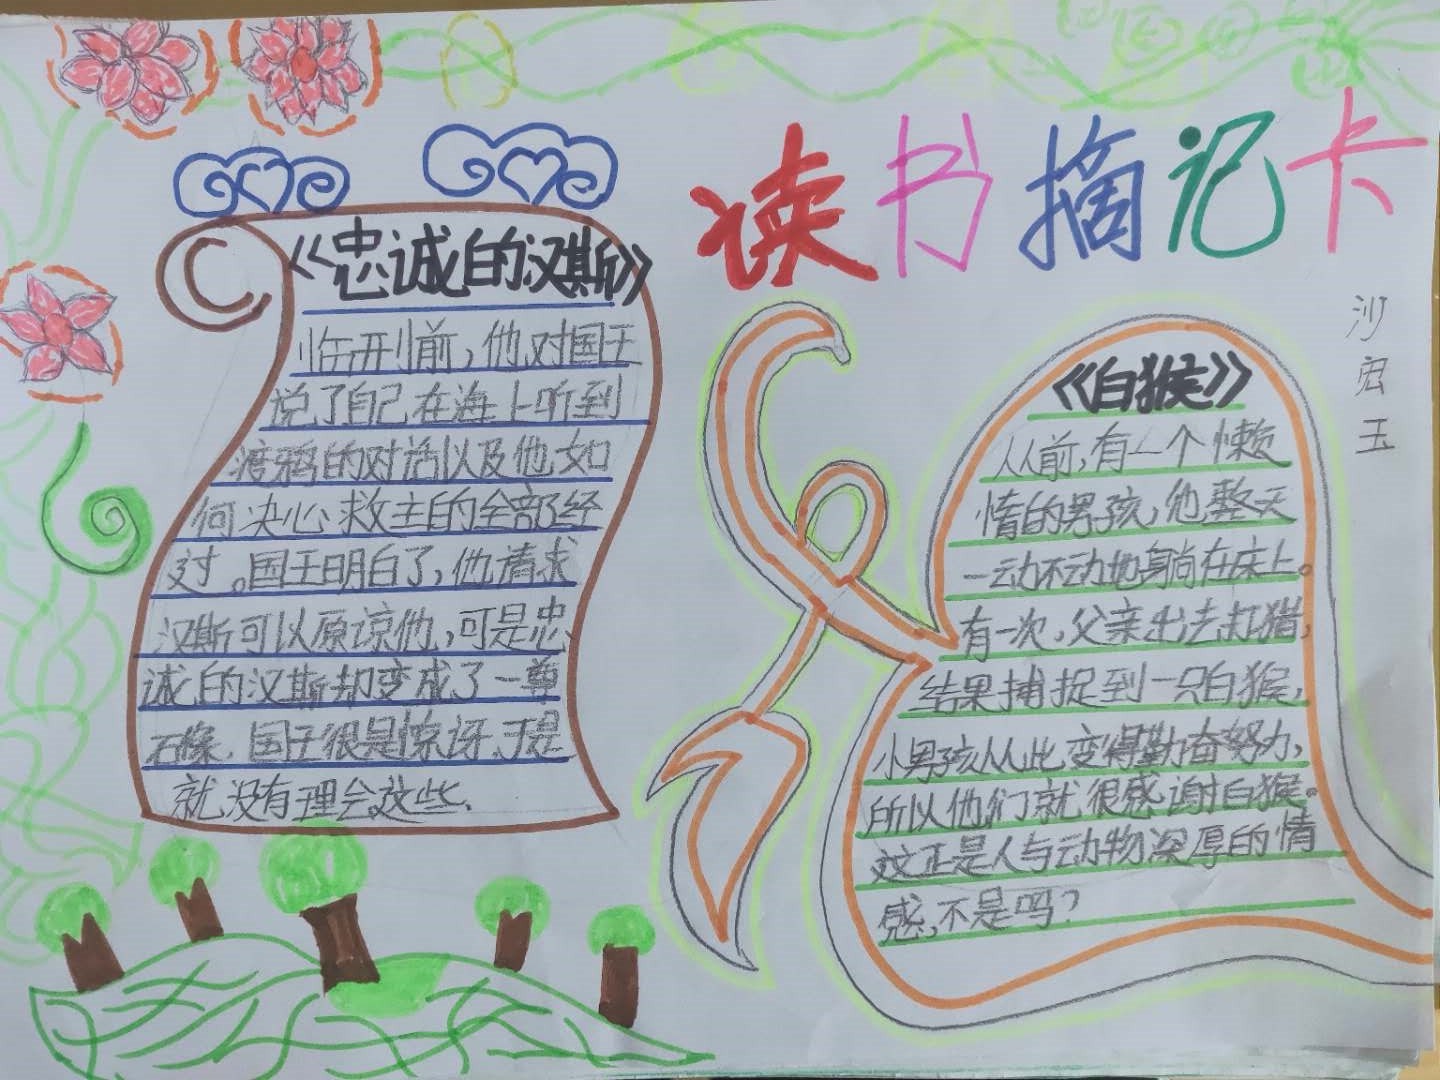 读书摘记卡
沙宏玉
《忠诚的汉斯》
临开刑前,他对国王
说了自己在海上听到
渡鸦的对话以及他如
何决心救主的全部经
过。国王明白了,他请求
汉斯可以原谅他,可是忠
诚的汉斯却变成了一尊
石像.国王很是惊讶,于是
就没有理会这些.
《白猴》
从前,有一个懒
惰的男孩,他整天
一动不动地躺在床上。
有一次,父亲出去打猎,
结果捕捉到一只白猴,
小男孩从此变得勤奋努力,
所以他们就很感谢白猴。
这正是人与动物深厚的情
感,不是吗?